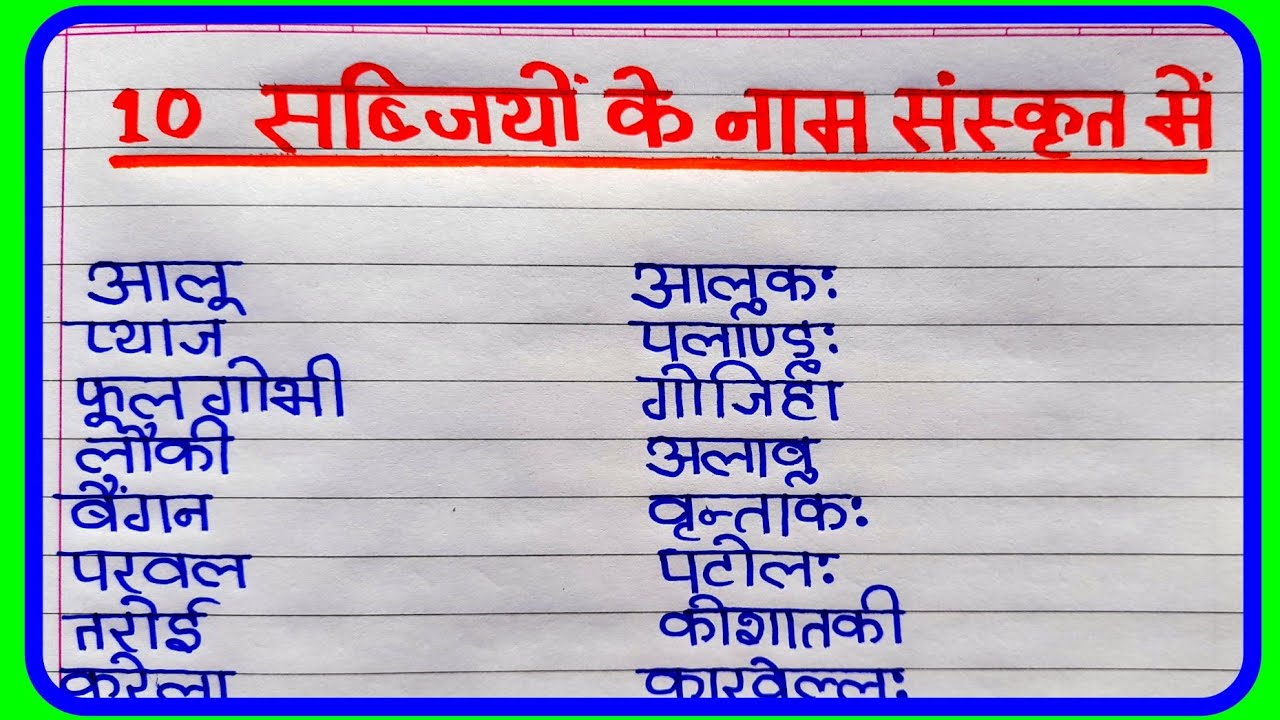 10 सब्जियों के नाम संस्कृत में
आलू आलुकः
प्याज पलाण्डुः
फूल गोभी गोजिहा
लौकी अलाबु
बैंगन वृन्ताकः
परवल पटोलः
तरोई कोशातकी
करेला कारवेल्लः